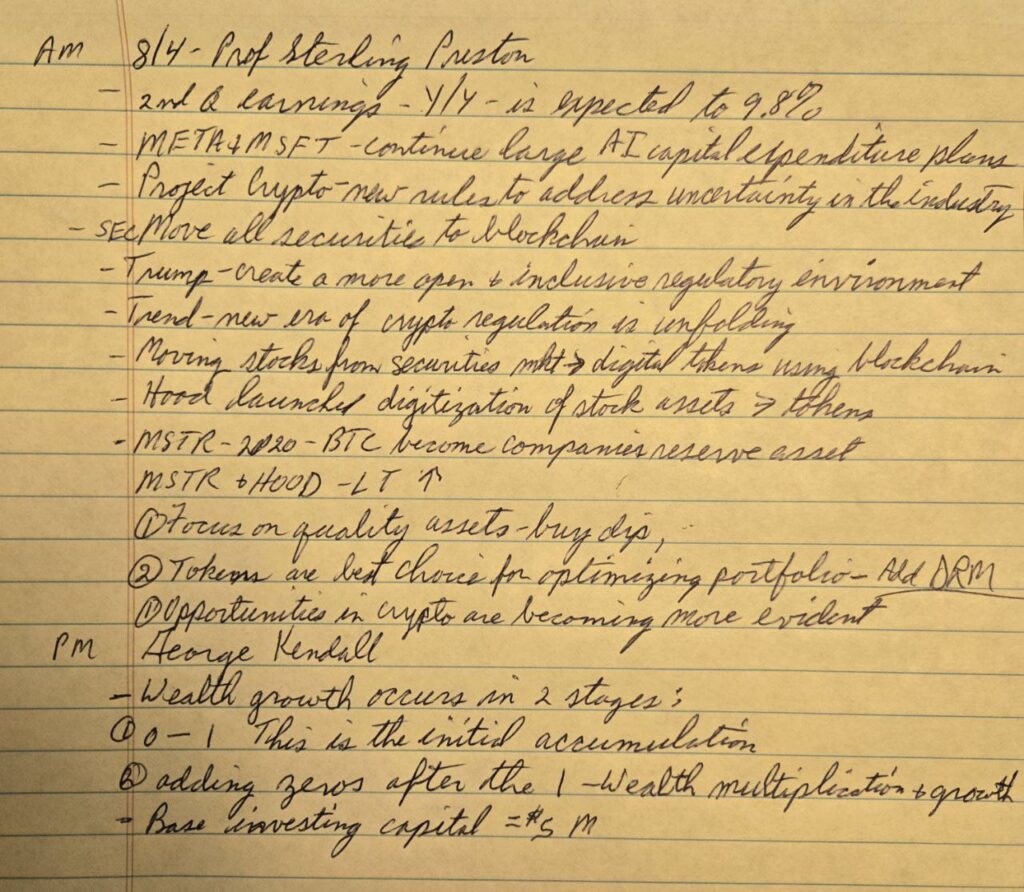 AM 8/4 - Prof Sterling Preston
- 2nd Q earnings - Y/Y - is expected to 9.8%
- META & MSFT - continue large AI capital expenditure plans
- Project Crypto - new rules to address uncertainty in the industry
- SEC Move all securities to blockchain
- Trump - create a more open & inclusive regulatory environment
- Trend - new era of crypto regulation is unfolding
- Moving stocks from securities mkt → digital tokens using blockchain
- Hood launched digitization of stock assets → tokens
- MSTR - 2020 - BTC become companies reserve asset
MSTR & HOOD - LT ↑
① Focus on quality assets - buy dip,
② Tokens are best choice for optimizing portfolio - Add DRM
① Opportunities in crypto are becoming more evident
PM George Kendall
- Wealth growth occurs in 2 stages:
① 0 - 1 This is the initial accumulation
② adding zeros after the 1 - Wealth multiplication & growth
- Base investing capital = $5 M